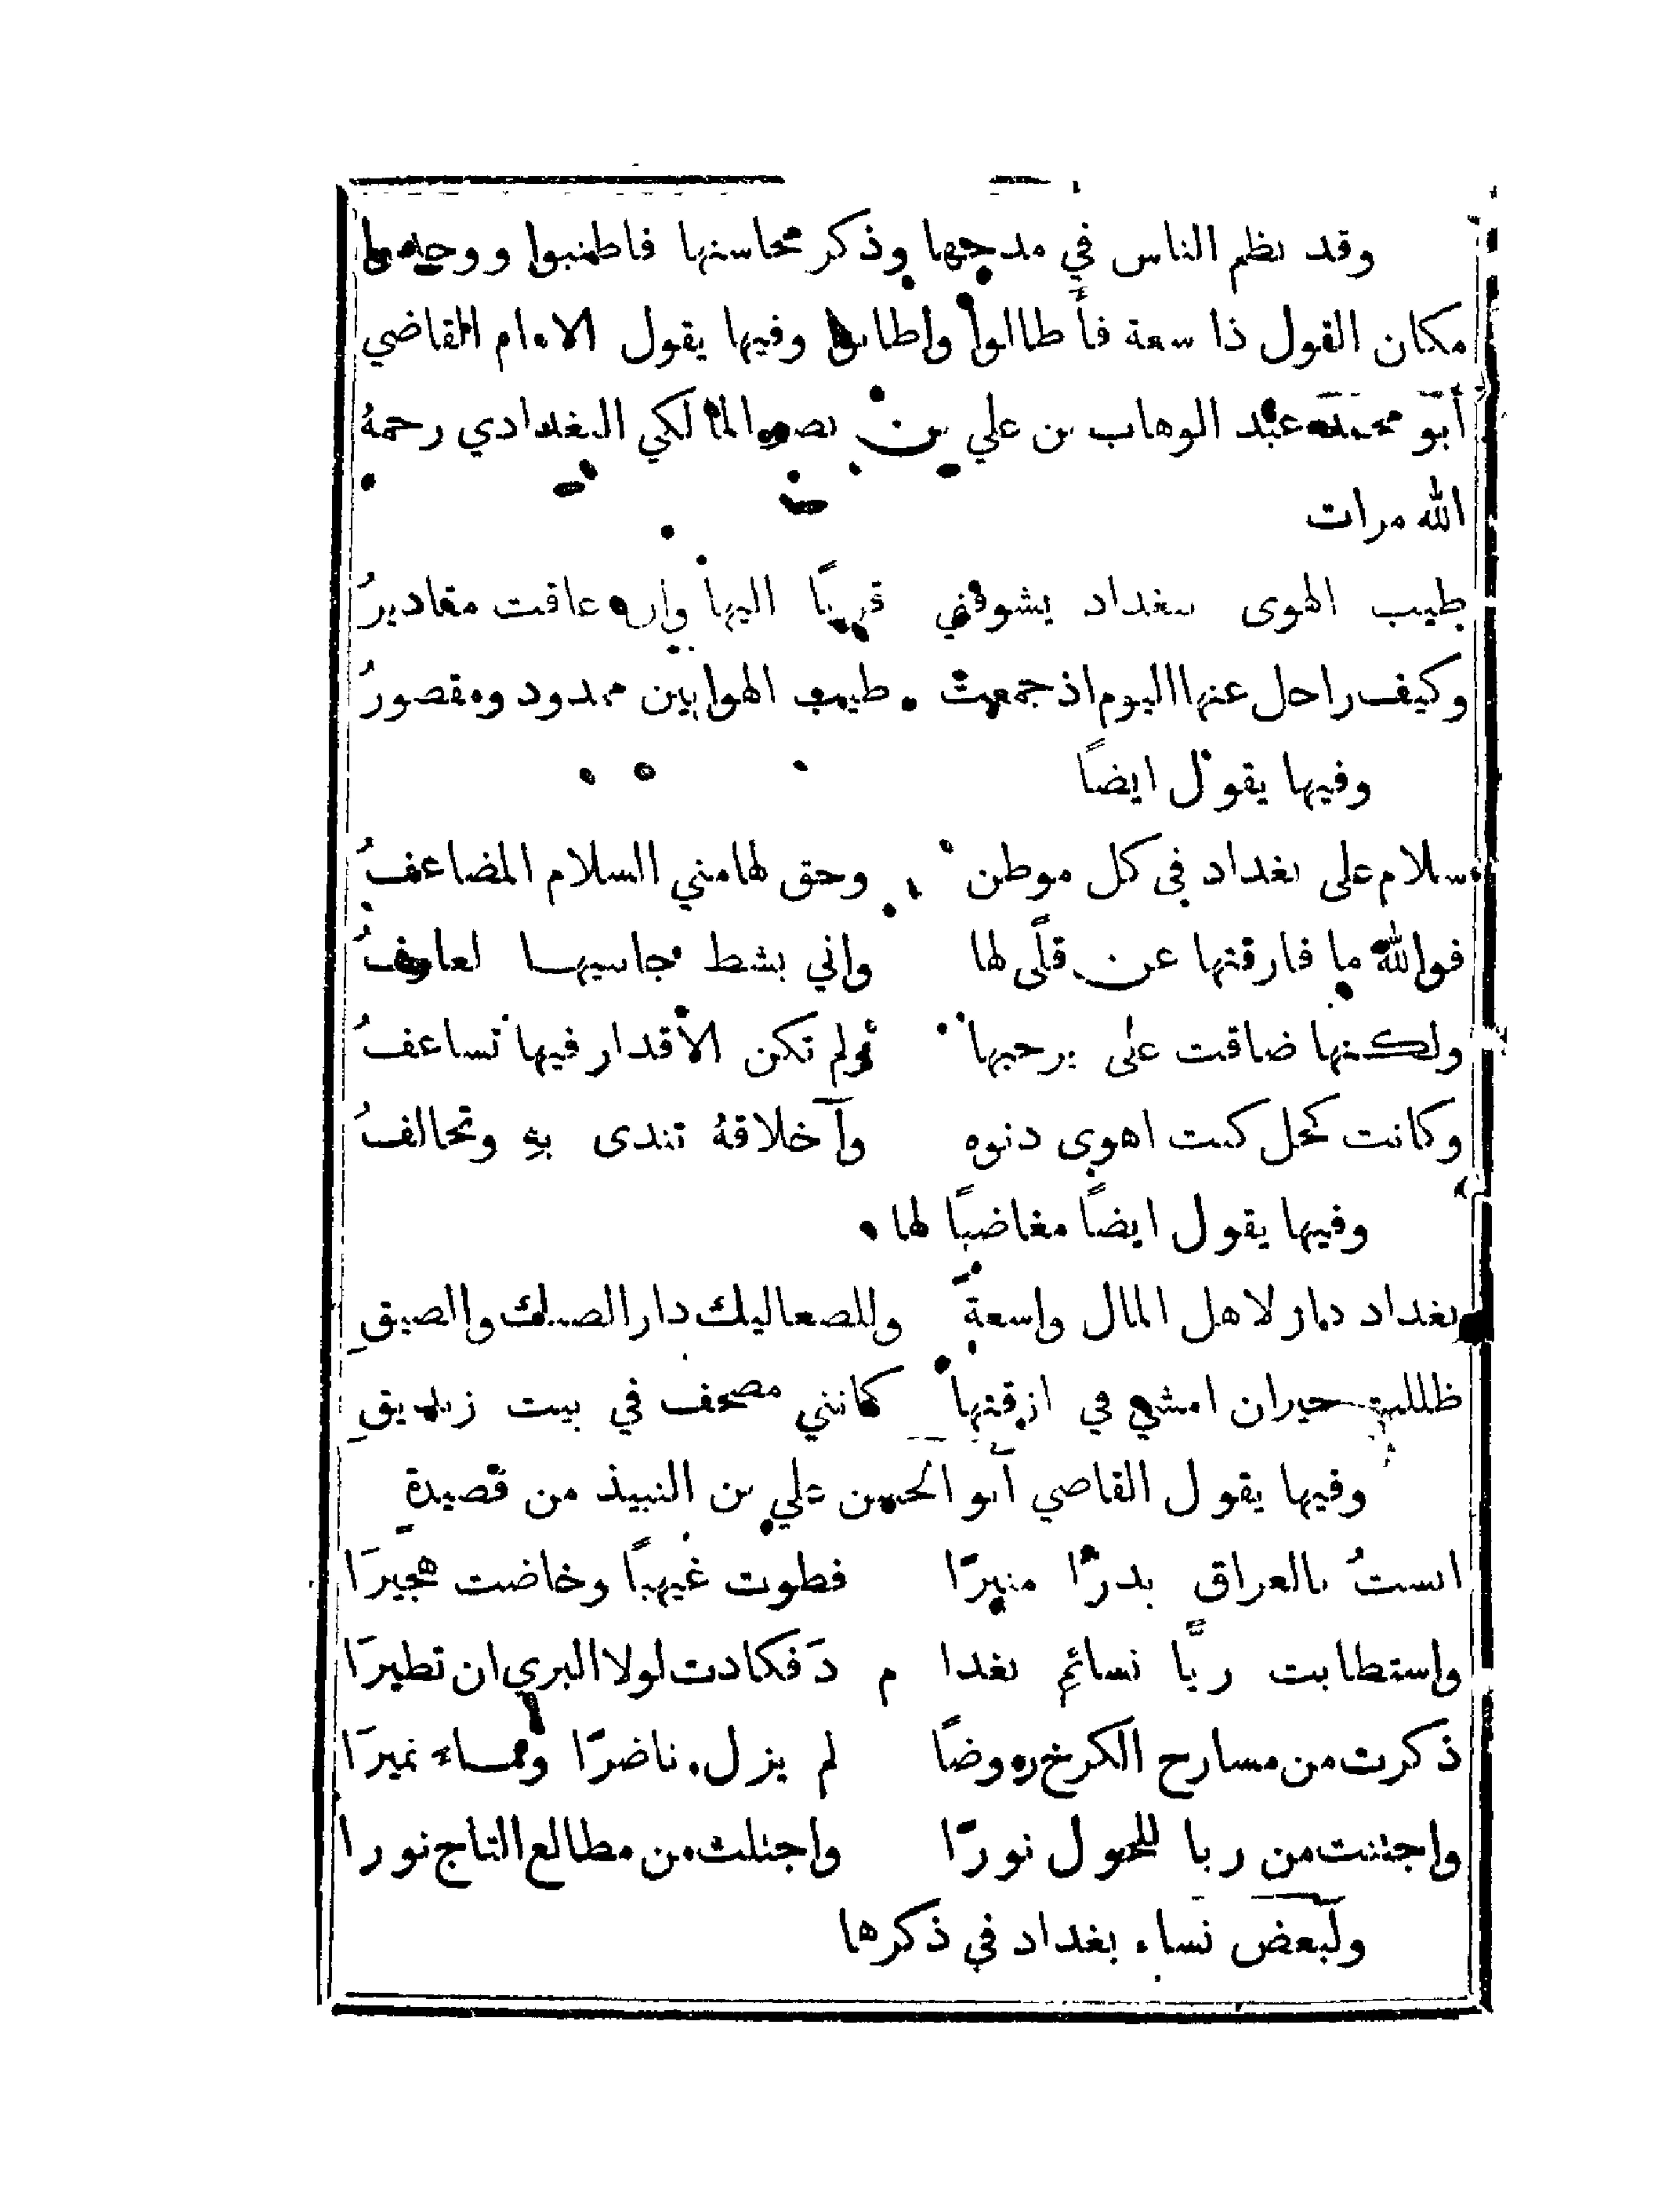 وقد نظم الناس في مدحها وذكر محاسنها فاطنبوا ووجدوا
مكان القول ذا سعة فأطالوا واطابوا وفيها يقول الامام القاضي
أبو محمد عبد الوهاب بن علي بن نصر المالكي البغدادي رحمهُ
الله مرات
طيب الهوى ببغداد يشوقني قربًا اليها وان عاقت مقاديرُ
وكيف راحل عنها اليوم اذ جمعت طيب الهوا بين ممدود ومقصورُ
وفيها يقول ايضاً
سلام على بغداد في كل موطن وحق لها مني السلام المضاعفُ
فوالله ما فارقتها عن قلًى لها واني بشط جانبيها لعارفُ
ولكنها ضاقت على برحبها ولم تكن الأقدار فيها تساعفُ
وكانت كخل كنت اهوى دنوه وأخلاقهُ تندى بهِ وتخالفُ
وفيها يقول ايضاً مغاضبًا لها
بغداد دار لاهل المال واسعة وللصعاليك دار الضنك والضيقِ
ظللت حيران امشي في ازقتها كانني مصحف في بيت زنديقِ
وفيها يقول القاضي أبو الحسن علي بن النبيذ من قصيدةٍ
انستُ بالعراق بدرًا منيرًا فطوت غيهبًا وخاضت هجيرَا
واستطابت ريًّا نسائم بغدا م دَ فكادت لولا البري ان تطيرَا
ذكرت من مسارح الكرخ روضًا لم يزل ناضرًا وماء نميرَا
واجتنت من ربا المحول نورًا واجتلت من مطالع التاج نورا
ولبعض نساء بغداد في ذكرها